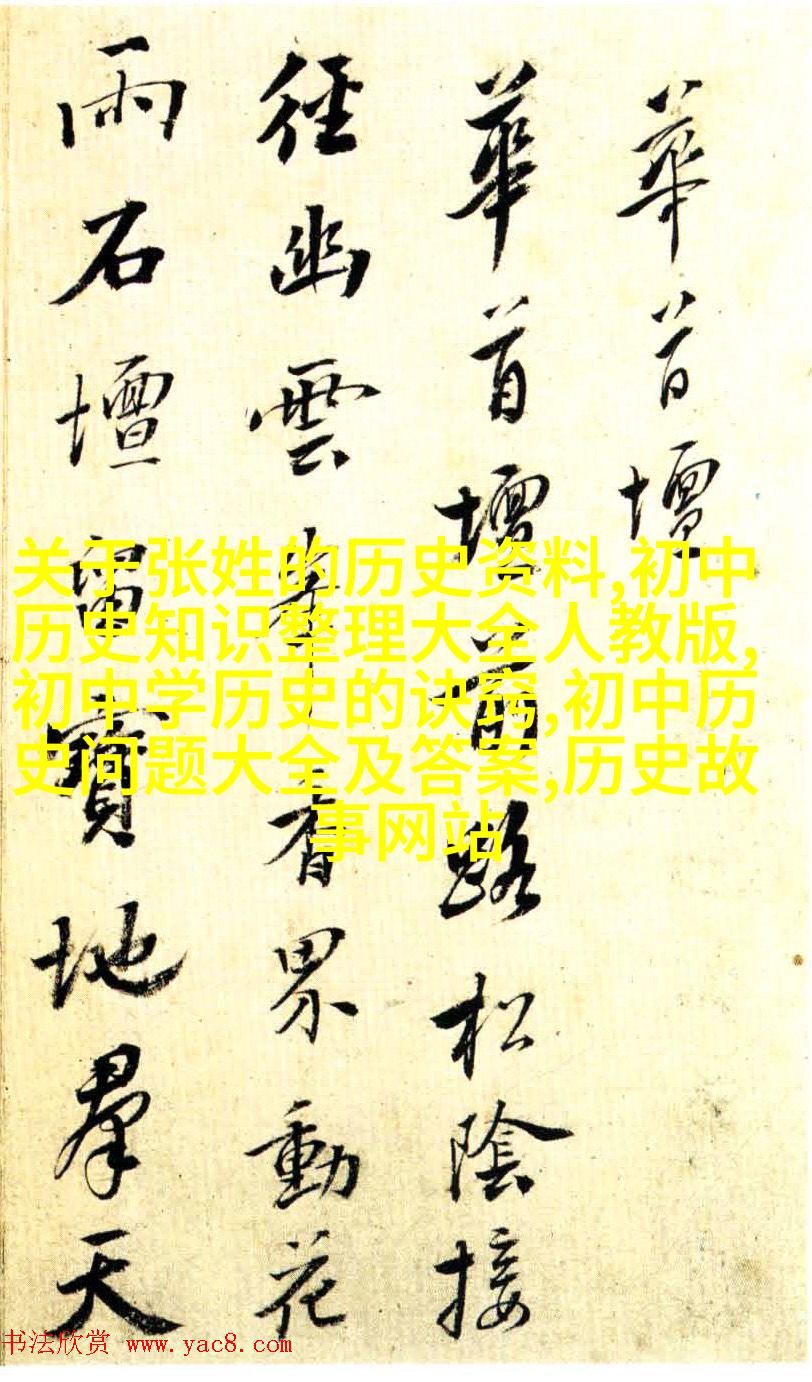 華首壇
華首壇前路松陰接
徑幽雲峯香界動花
雨石壇留寶地羣天
关于张姓的历史资料,初中
历史知识整理大全人教版,
初中学历史的诀窍,初中历
史问题大全及答案,历史故
事网站
书法欣赏 www.yac8.com